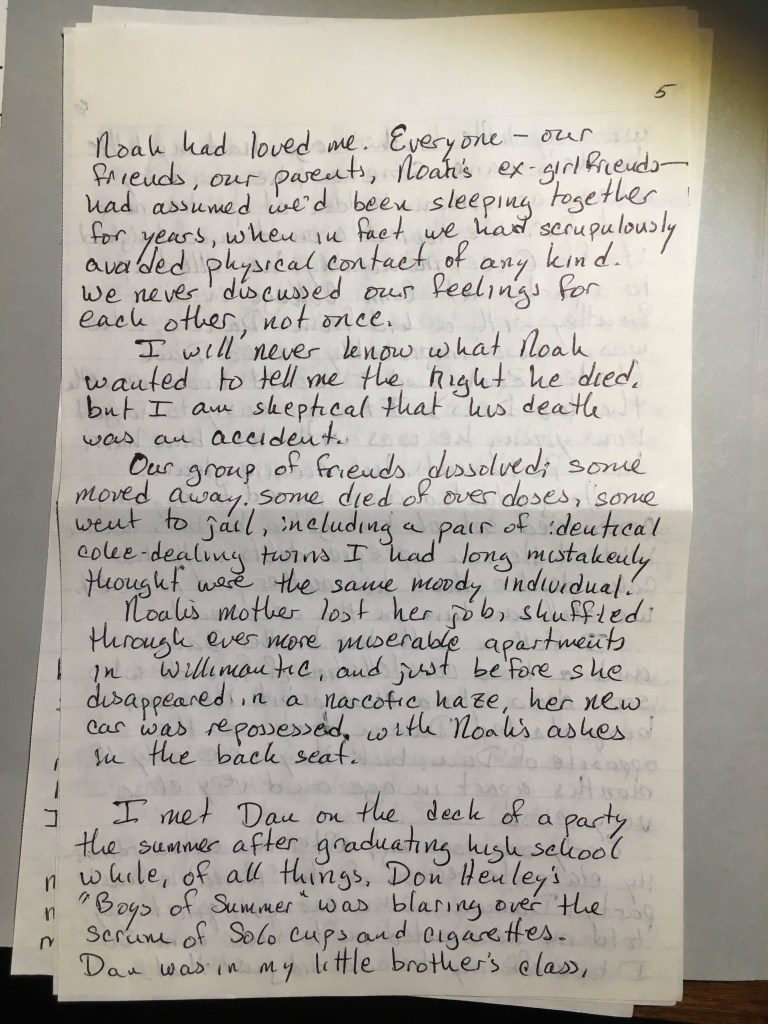 5
Noah had loved me. Everyone – our
friends, our parents, Noah's ex-girlfriends –
had assumed we'd been sleeping together
for years, when in fact we had scrupulously
avoided physical contact of any kind.
We never discussed our feelings for
each other, not once.
I will never know what Noah
wanted to tell me the night he died,
but I am skeptical that his death
was an accident.
Our group of friends dissolved; some
moved away. some died of overdoses, some
went to jail, including a pair of identical
coke-dealing twins I had long mistakenly
thought were the same moody individual.
Noah's mother lost her job, shuffled
through ever more miserable apartments
in Willimantic, and just before she
disappeared in a narcotic haze, her new
car was repossessed, with Noah's ashes
in the back seat.
I met Dan on the deck of a party
the summer after graduating high school
while, of all things, Don Henley's
"Boys of Summer" was blaring over the
scrum of Solo cups and cigarettes.
Dan was in my little brother's class,